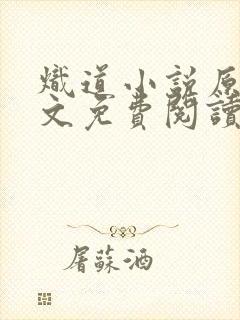 熾道小說原
文免費閱讀
屠蘇酒